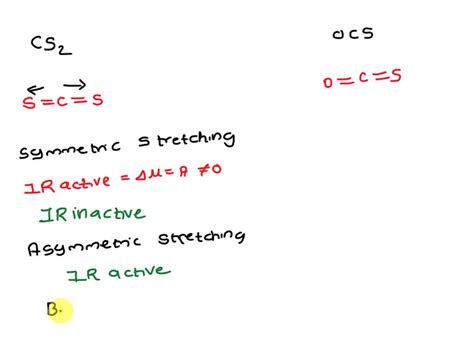 CS2
OCS
S=C=S
O=C=S
Symmetric Stretching
IR active = Δμ = A ≠0
IR inactive
Asymmetric Stretching
IR active
B.